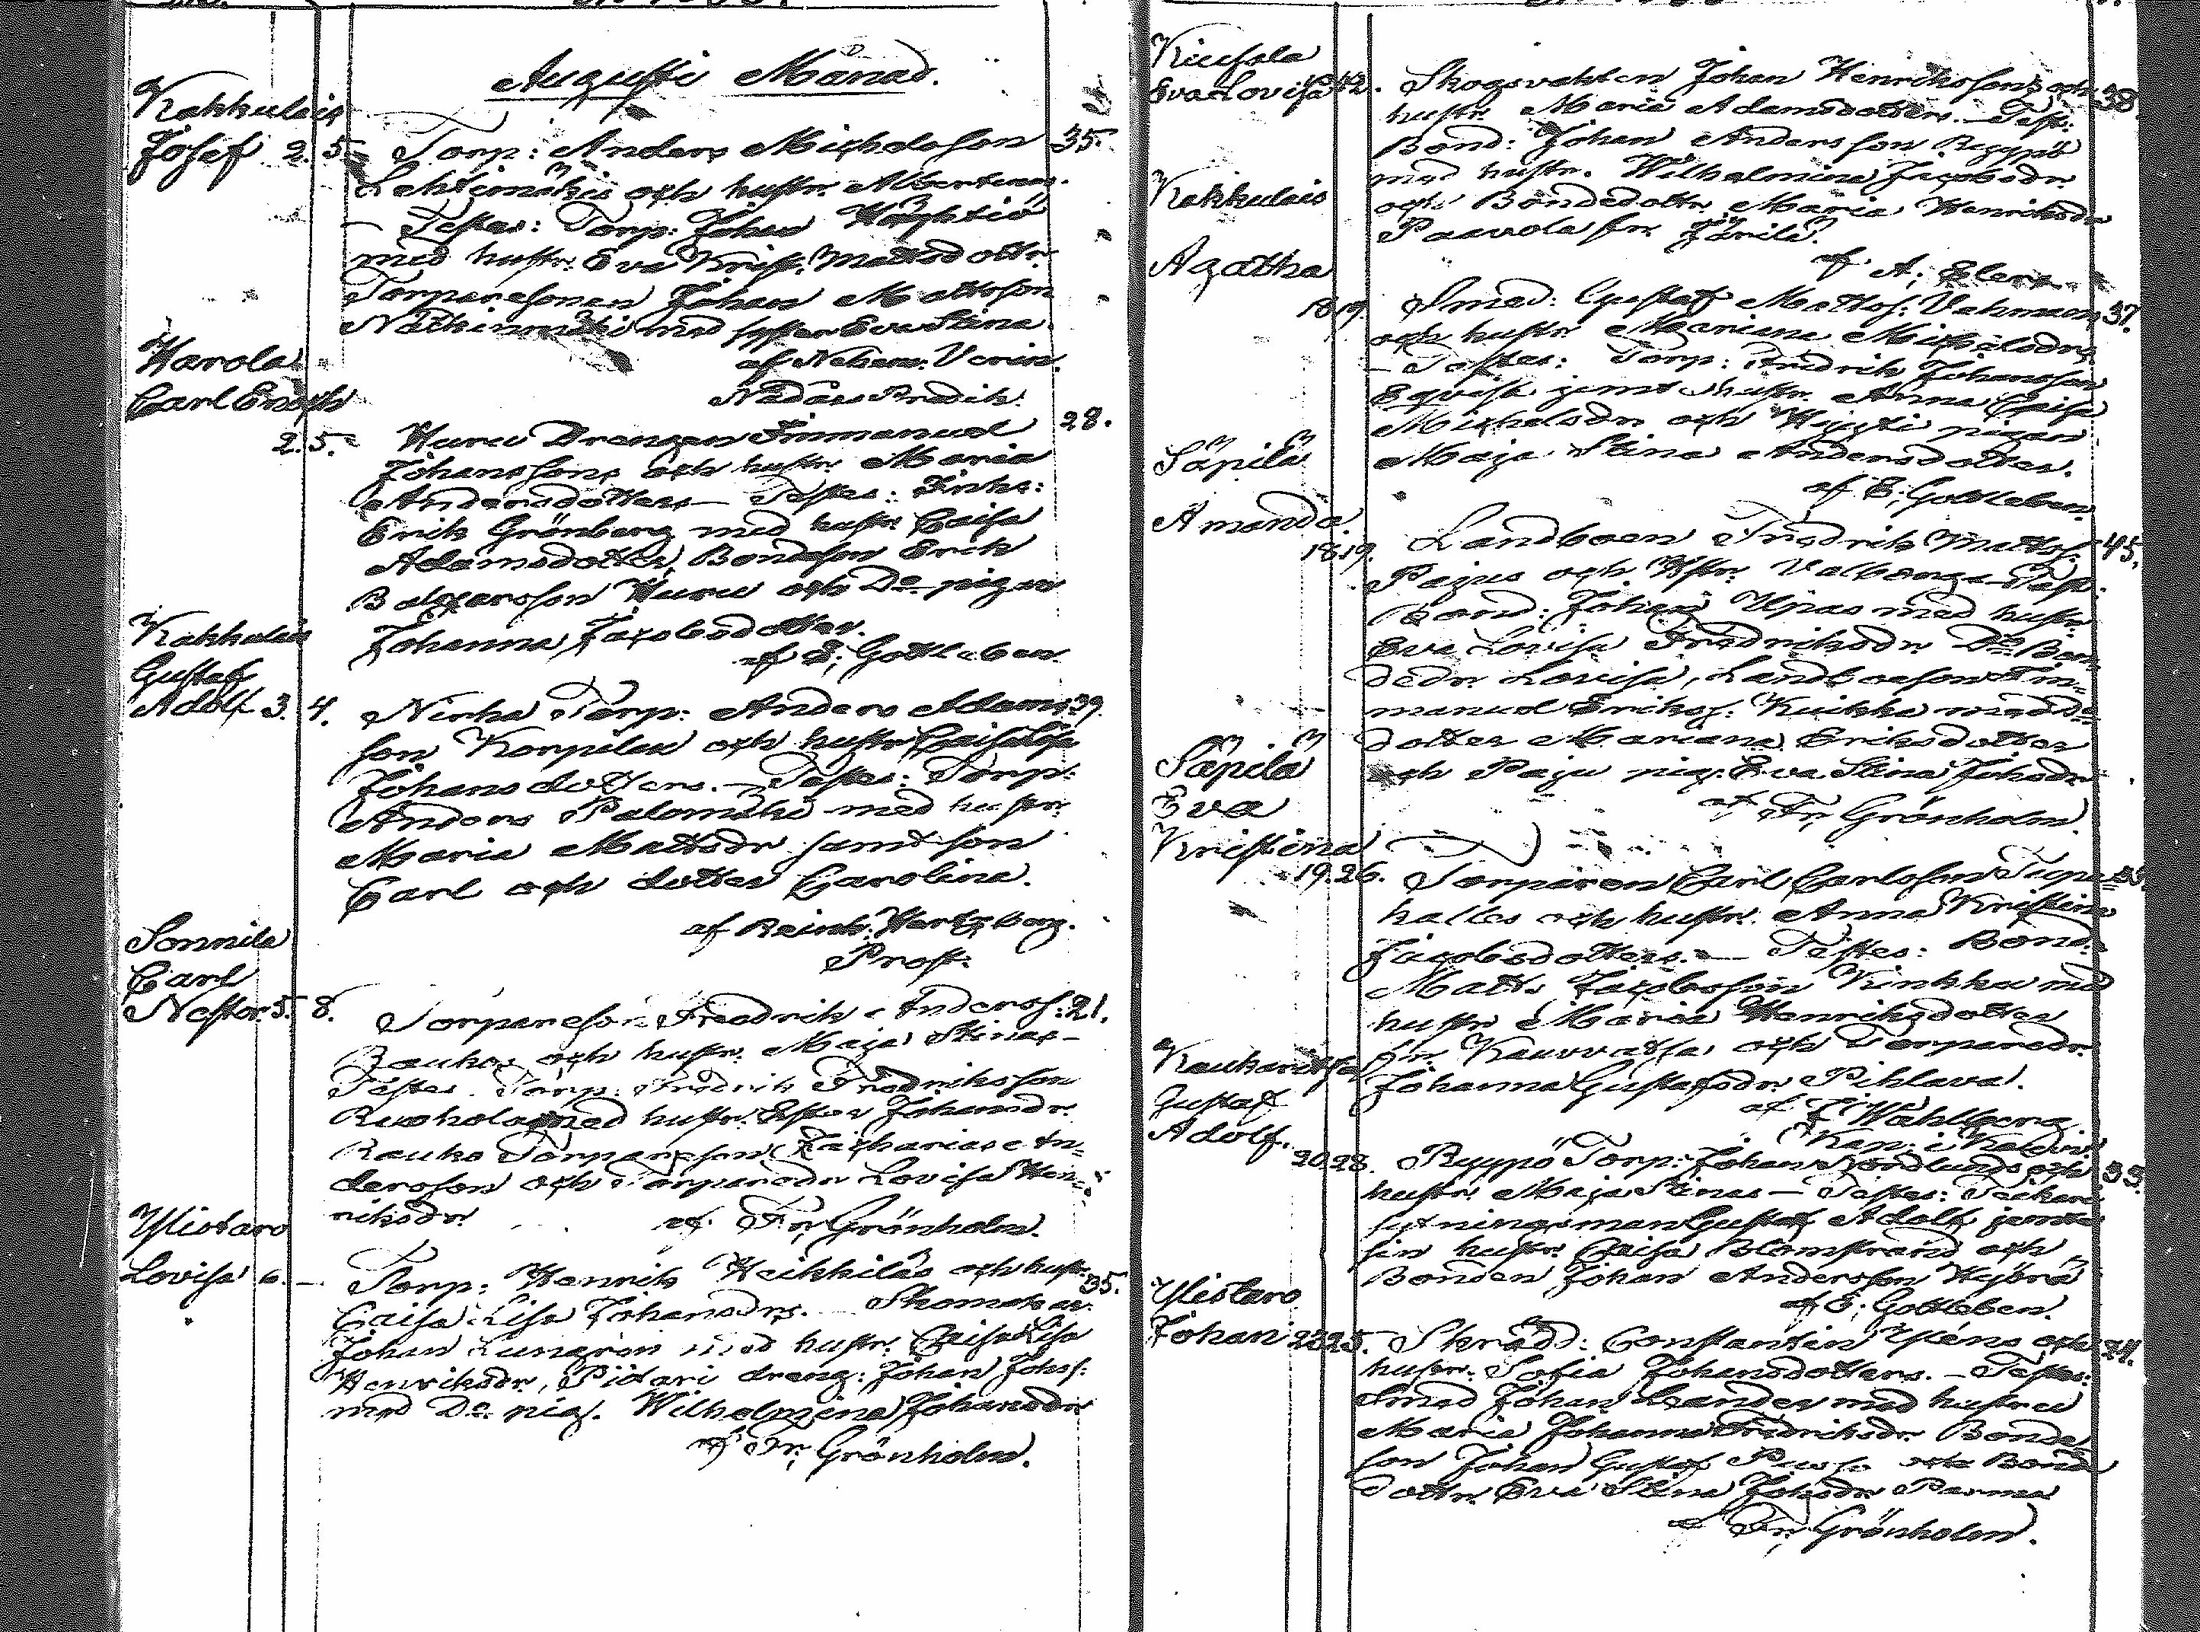 Augusti Månad.
Kakkulais
Josef 2. 5. Torp: Anders Michelsson 35.
Lehtimäkis och hustr. Albertinas.
— Testes: Torp: Johan
med hustr. Eva Krist. Mattsdottr.
Torparesonen Johan Mattsson
med syster Eva Stina.
af Nehem: Verin.
Nådårs Predik.
Harola
Carl Enoch
2. 5. Huru Drengen Immanuel 28.
Johanssons och hustr. Maria
Andersdotters — Testes: Inhs:
Erik Grönberg med hustr. Caisa
Adamsdotter, Bondeson Erik
Huru och Do pigan
Johanna Jacobsdotter.
af E; Gottleben.
Kakkulais
Gustaf
Adolf 3. 4. Torp: Anders Adams- 39.
son Korpelas och hustr Caisa Lisa
Johansdotters. — Testes: Torp:
Anders Palomäki med hustr.
Maria Mattsdr samt son
Carl och dotter Carolina.
af Reinh: Hertzberg.
Prost.
Sonnila
Carl
Nestor. 5. 8. Torpareson Fredrik Anderss: 21.
Raukos och hustr. Maja Stinas —
Testes. Torp: Fredrik Fredriksson
Ruohola med hustr. Ester Johansdr.
Rauko Torpareson Zacharias An-
dersson och Torparedr Lovisa Hen-
riksdr. af Fr; Grönholm.
Ylistaro
Lovisa 6. — Torp: Henrik Heikkiläs och hustr. 35.
Caisa Lisa Johansdrs. — Skomakar:
Johan Lungrön med hustr. Caisa Lisa
Henriksdr, Pietari dreng: Johan Johss:
med Do pig. Wilhelmina Johansdr
af Fr; Grönholm.
Kiusala
Eva Lovisa 12. Skogsvakten Johan Henrikssons och 38.
hustr. Maria Adamsdotters. — Test:
Bond: Johan Andersson Ryyppö
med hustr. Wilhelmina Jacobsdr.
och Bondedottr. Maria Henriksdr
Paavola fr. Järilä.
af A; Elers.
Kakkulais
Agatha
18. 19. Smed: Gustaf Mattss: Vahmans 37.
och hustr. Mariana Michelsdrs
— Testes: Torp: Fredrik Johansson
Eqvist jemt hustr. Anna Caisa
Michelsdr och pigan
Maja Stina Andersdotter.
af E; Gottleben.
Säpilä
Amanda.
18. 19. Landboen Fredrik Mattss: 45.
Pajus och Hstr. Valborgs — Test.
Bond: Johan Upas med hustr.
Eva Lovisa Fredriksdr. Do Bon-
dedr. Lovisa, Landboeson Im-
manuel Erikss: Kuikka med Do
dotter Mariana Eriksdotter
och Paju pig. Eva Stina Johsdr
af Fr; Grönholm.
Säpilä
Eva
Kristina
19. 26. Torparen Carl Carlsson
kallas och hustr. Anna Kristina
Jacobsdotters. — Testes: Bond:
Matts Jacobsson Kinkka med
hustr Maria Henriksdotter
fr. Kauvatsa och Torparedr.
Johanna Gustafsdr. Pihlava.
af F. Wahlberg.
Kap: i
Kaukaritsa
Gustaf
Adolf.
20. 28. Ryyppö Torp: Johan Nordlunds och 33.
hustr. Maja Stinas — Testes:
Gustaf Adolf jemte
sin hustr. Caisa Blomstrand och
Bonden Johan Andersson Hejörä
af E; Gottleben.
Ylistaro
Johan 23. 25. Skrädd: Constantin och 24.
hustr. Sofia Johansdotters. — Testes:
Smed Johan Leander med hustru
Maria Johanna Fredriksdr. Bonde-
son Johan Gustaf och Bonde
dottr. Eva Stina Johsdr. Parma
af Fr; Grönholm.